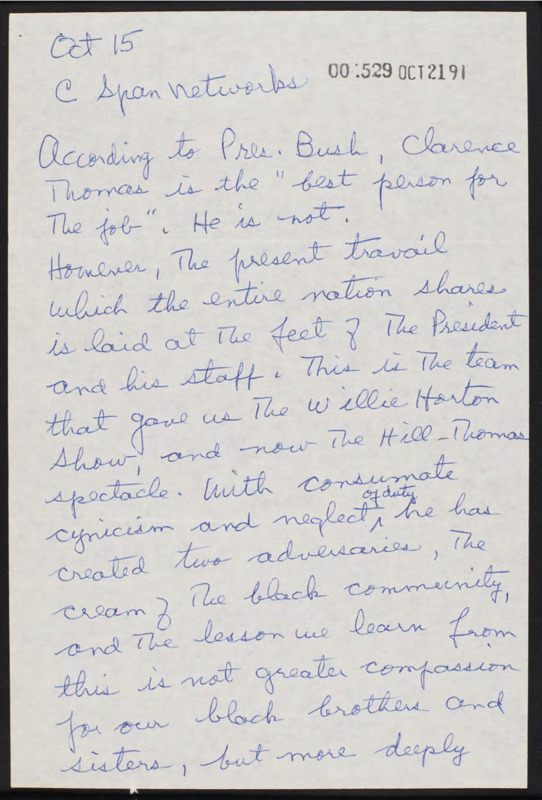 Oct 15
C Span networks
00:529 OCT 21 91
According to Pres. Bush, Clarence
Thomas is the "best person for
The job". He is not.
However, The present travail
which the entire nation shares
is laid at The feet of The President
and his staff. This is The team
that gave us The Willie Horton
Show, and now The Hill-Thomas
spectacle. With consumate
cynicism and neglect of duty, he has
created two adversaries, The
cream of The black community,
and The lesson we learn from
this is not greater compassion
for our black brothers and
sisters, but more deeply